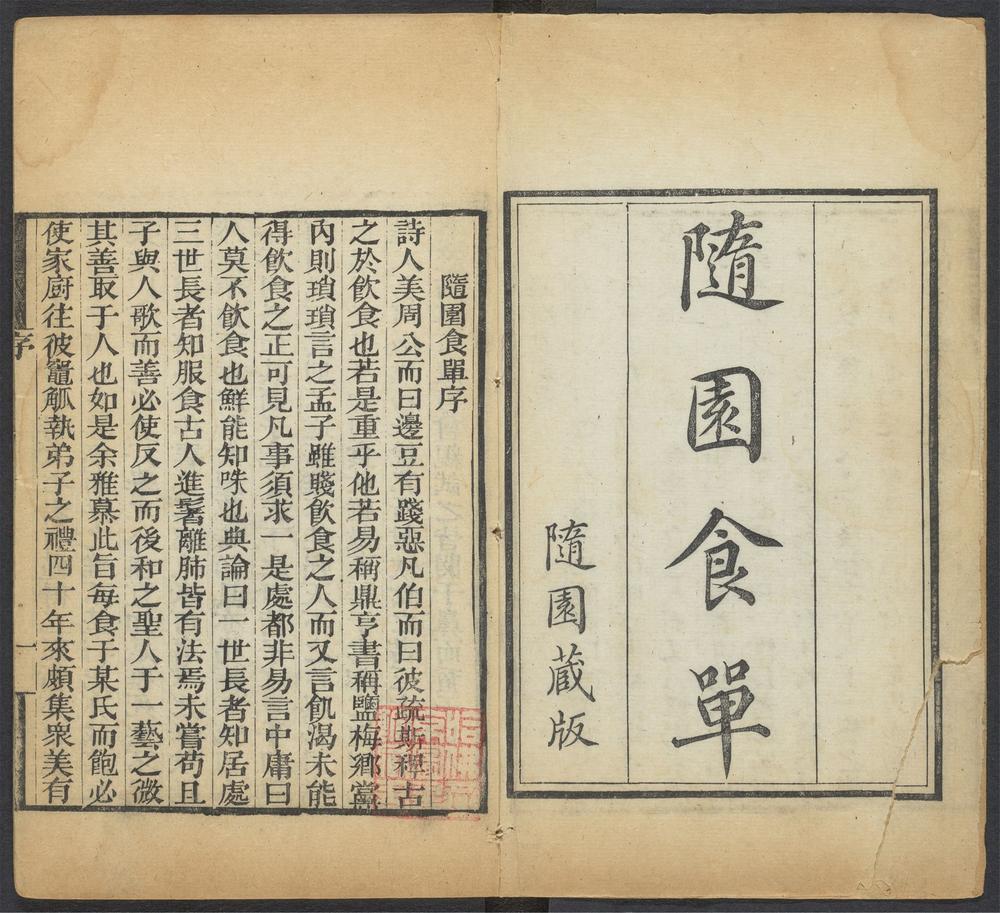 隨園食單
隨園蔵版
隨園食單序
詩人美周公而曰邊豆有踐惡凡伯而曰彼疏斯稗古
之於飲食也若是重乎他若易稱鼎亨書稱鹽梅鄉黨
內則瑣瑣言之孟子雖賤飲食之人而又言飢渴未能
得飲食之正可見凡事須求一是處都非易言中庸曰
人莫不飲食也鮮能知味也典論曰一世長者知居處
三世長者知服食古人進鬐離肺皆有法焉未嘗苟且
子與人歌而善必使反之而後和之聖人于一藝之微
其善取于人也如是余雅慕此旨每食于某氏而飽必
使家厨往彼竈觚執弟子之禮四十年來頗集衆美有
序
一